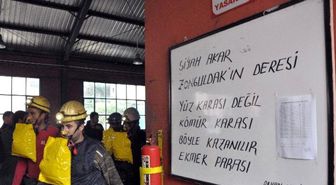 YASAK
SİYAH AKAR
ZONGULDAK'IN DERESİ
YÜZ KARASI DEĞİL
KÖMÜR KARASI
BÖYLE KAZANILIR
EKMEK PARASI